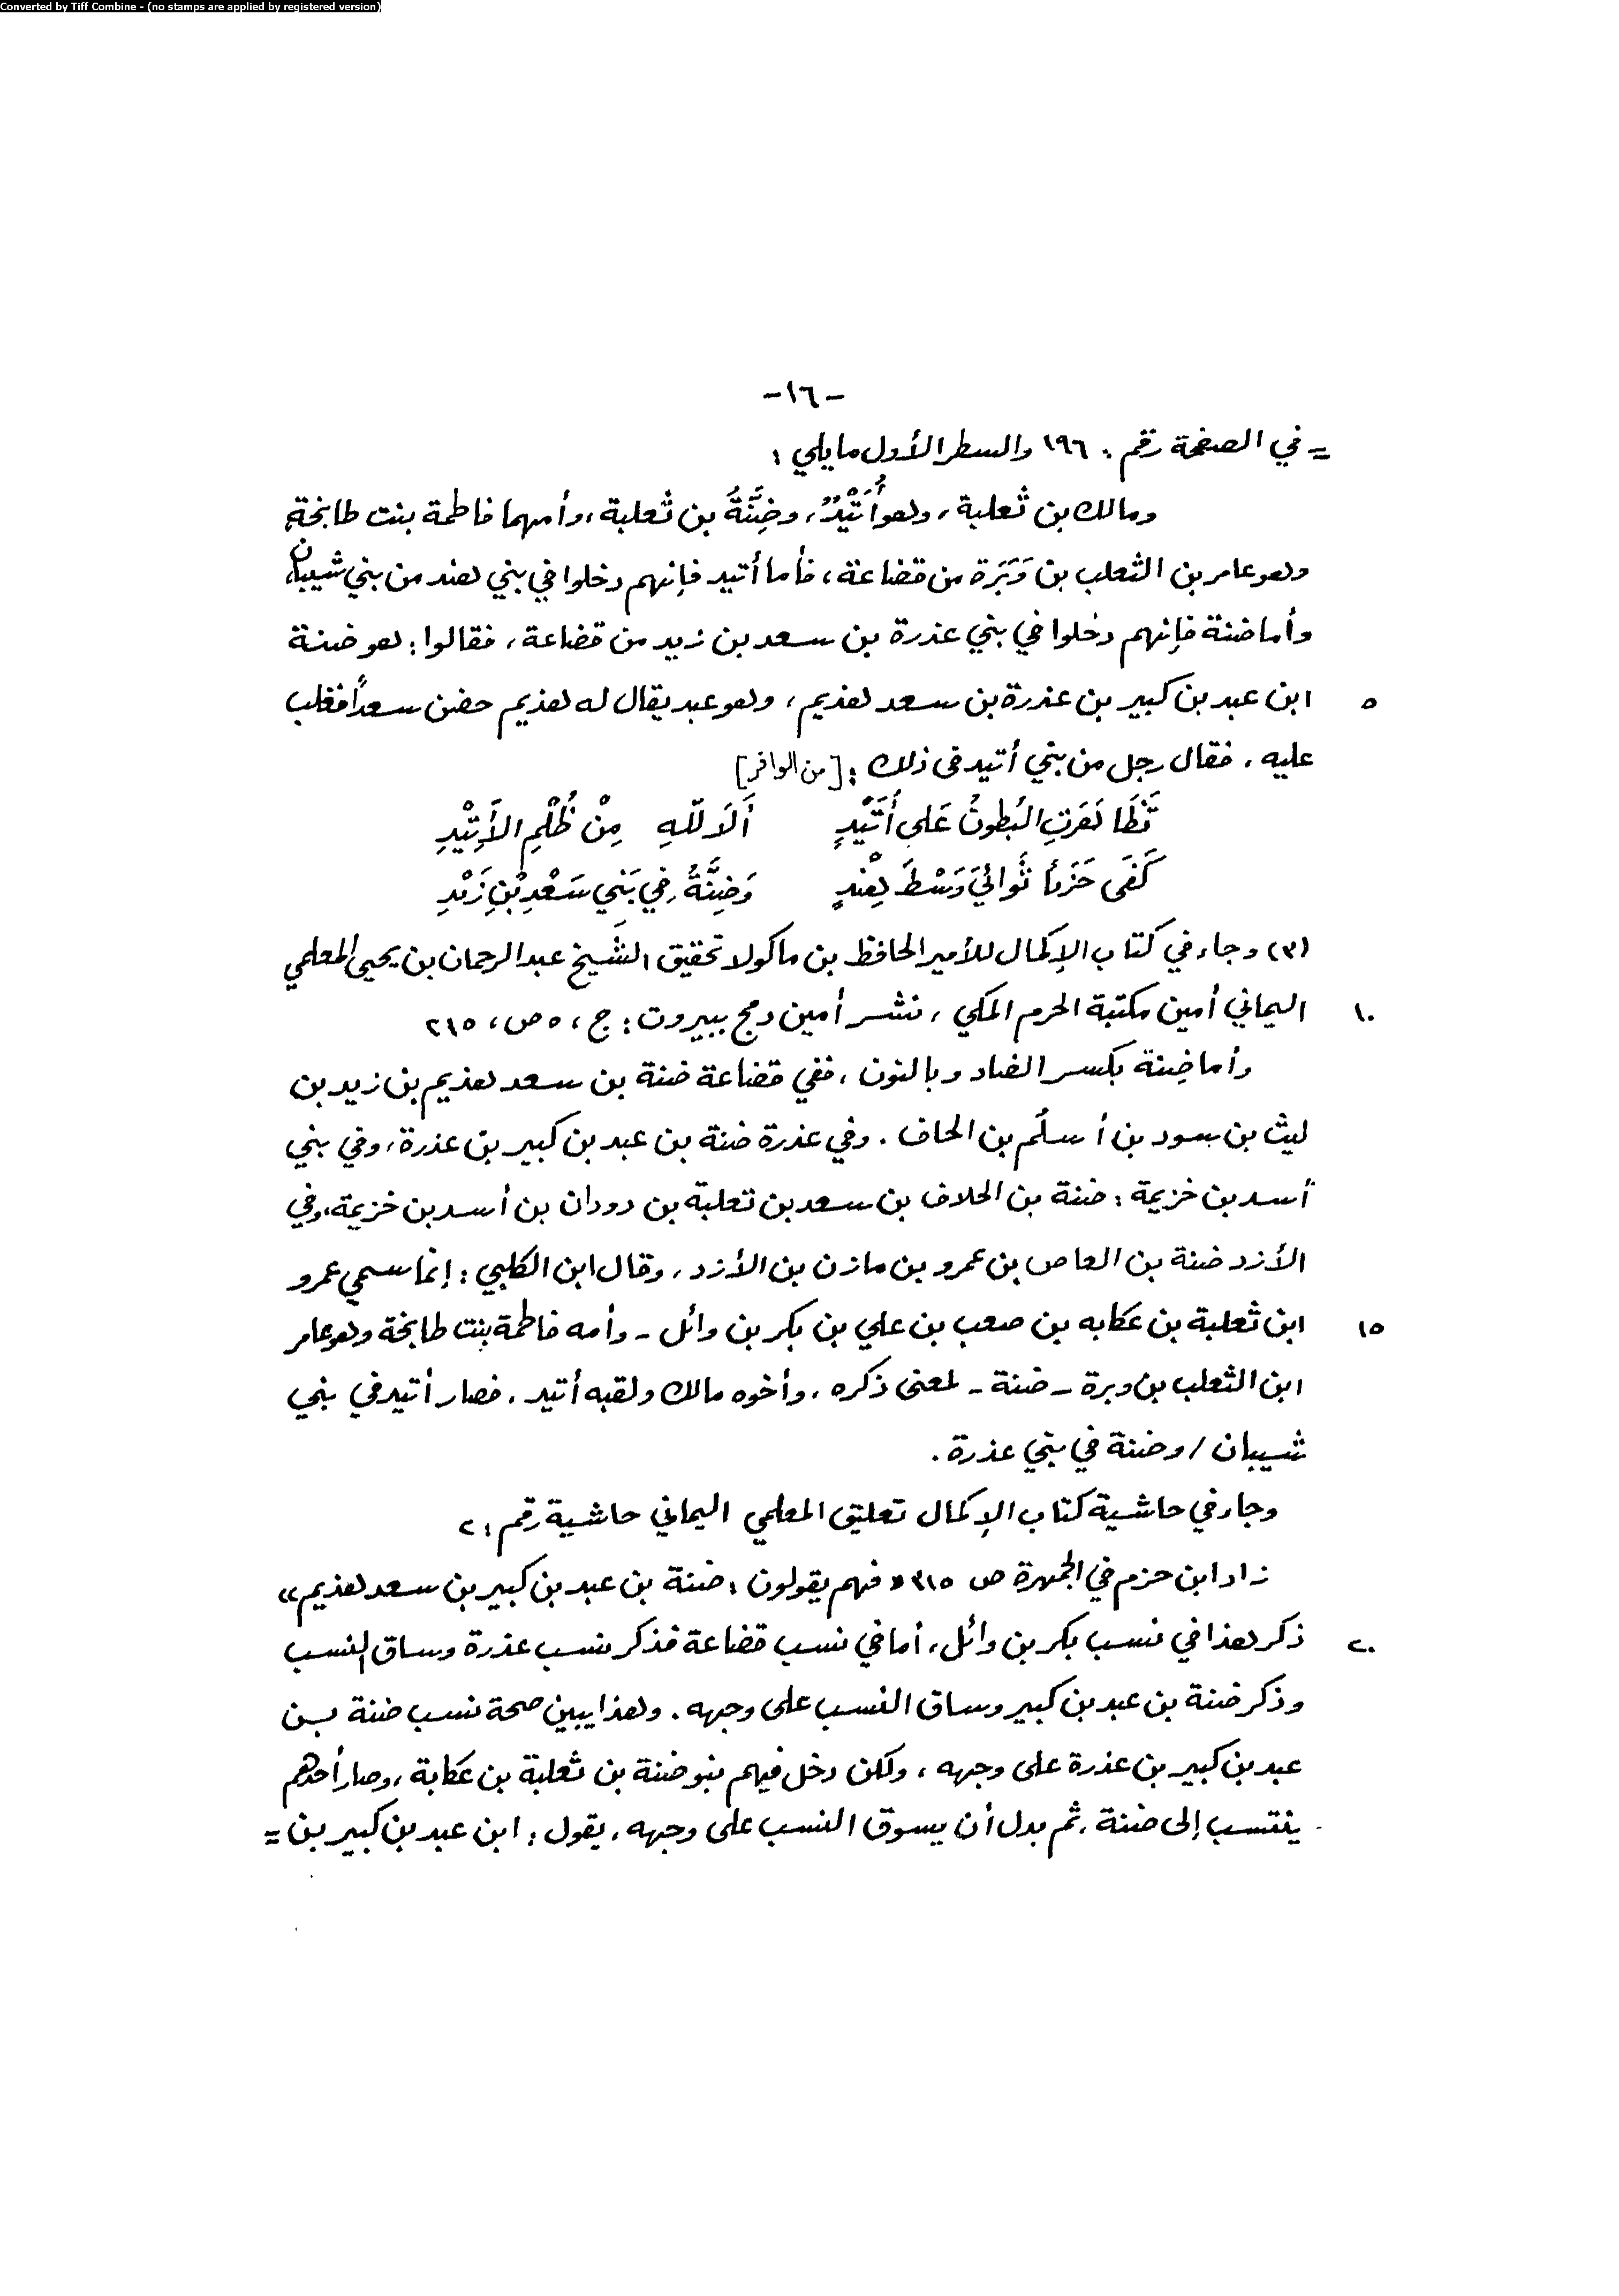 Converted by Tiff Combine - (no stamps are applied by registered version)
-١٦-
= في الصفحة رقم: ١٩٦ والسطر الأول مايلي:
ومالك بن ثعلبة، وهو أُتَيْدٌ، وضِنَّةُ بن ثعلبة، وأمهما فاطمة بنت طابخة
وهو عامر بن الثعلب بن وَبَرَة من قضاعة، فأما أتيد فإنهم دخلوا في بني هند من بني شيبان،
وأما ضنة فإنهم دخلوا في بني عذرة بن سعد بن زيد من قضاعة، فقالوا: هو ضنة
٥ ابن عبد بن كبير بن عذرة بن سعد هذيم، وهو عبد يقال له هذيم حضن سعداً فغلب
عليه. فقال رجل من بني أتيد في ذلك: [من الوافر]
تَظَاهَرَتِ البُطونُ عَلى أُتَيْدٍ أَلَا للّهِ مِنْ ظُلْمِ الأَتِيْدِ
كَفَى حَزَناً ثَوائيَ وَسْطَ هِنْدٍ وَضِنَّةُ في بَني سَعْدِ بْنِ زَيْدِ
(٣) وجاء في كتاب الإكمال للأمير الحافظ بن ماكولا تحقيق الشيخ عبد الرحمان بن يحيى المعلمي
١٠ اليماني أمين مكتبة الحرم المكي، نشر أمين دمج ببيروت: ج، ٥ ص، ٢١٥
وأما ضِنة بكسر الضاد وبالنون، ففي قضاعة ضنة بن سعد هذيم بن زيد بن
ليث بن سود بن أسلُم بن الحاف. وفي عذرة ضنة بن عبد بن كبير بن عذرة، وفي بني
أسد بن خزيمة: ضنة بن الحلاف بن سعد بن ثعلبة بن دودان بن أسد بن خزيمة، وفي
الأزد ضنة بن العاص بن عمرو بن مازن بن الأزد، وقال ابن الكلبي: إنما سمي عمرو
١٥ ابن ثعلبة بن عكابه بن صعب بن علي بن بكر بن وائل - وأمه فاطمة بنت طابخة وهو عامر
ابن الثعلب بن وبرة - ضنة - لمعنى ذكره، وأخوه مالك ولقبه أتيد. فصار أتيد في بني
شيبان / وضنة في بني عذرة.
وجاء في حاشية كتاب الإكمال تعليق المعلمي اليماني حاشية رقم: ٢
زاد ابن حزم في الجمهرة ص ٣١٥ «فهم يقولون: ضنة بن عبد بن كبير بن سعد هذيم»
٢٠ ذكر هذا في نسب بكر بن وائل، أما في نسب قضاعة فذكر نسب عذرة وساق النسب
وذكر ضنة بن عبد بن كبير وساق النسب على وجهه. وهذا يبين صحة نسب ضنة بن
عبد بن كبير بن عذرة على وجهه، ولكن دخل فيهم بنو ضنة بن ثعلبة بن عكابة، وصار أحدهم
ينتسب إلى ضنة. ثم بدل أن يسوق النسب على وجهه. يقول: ابن عبد بن كبير بن =